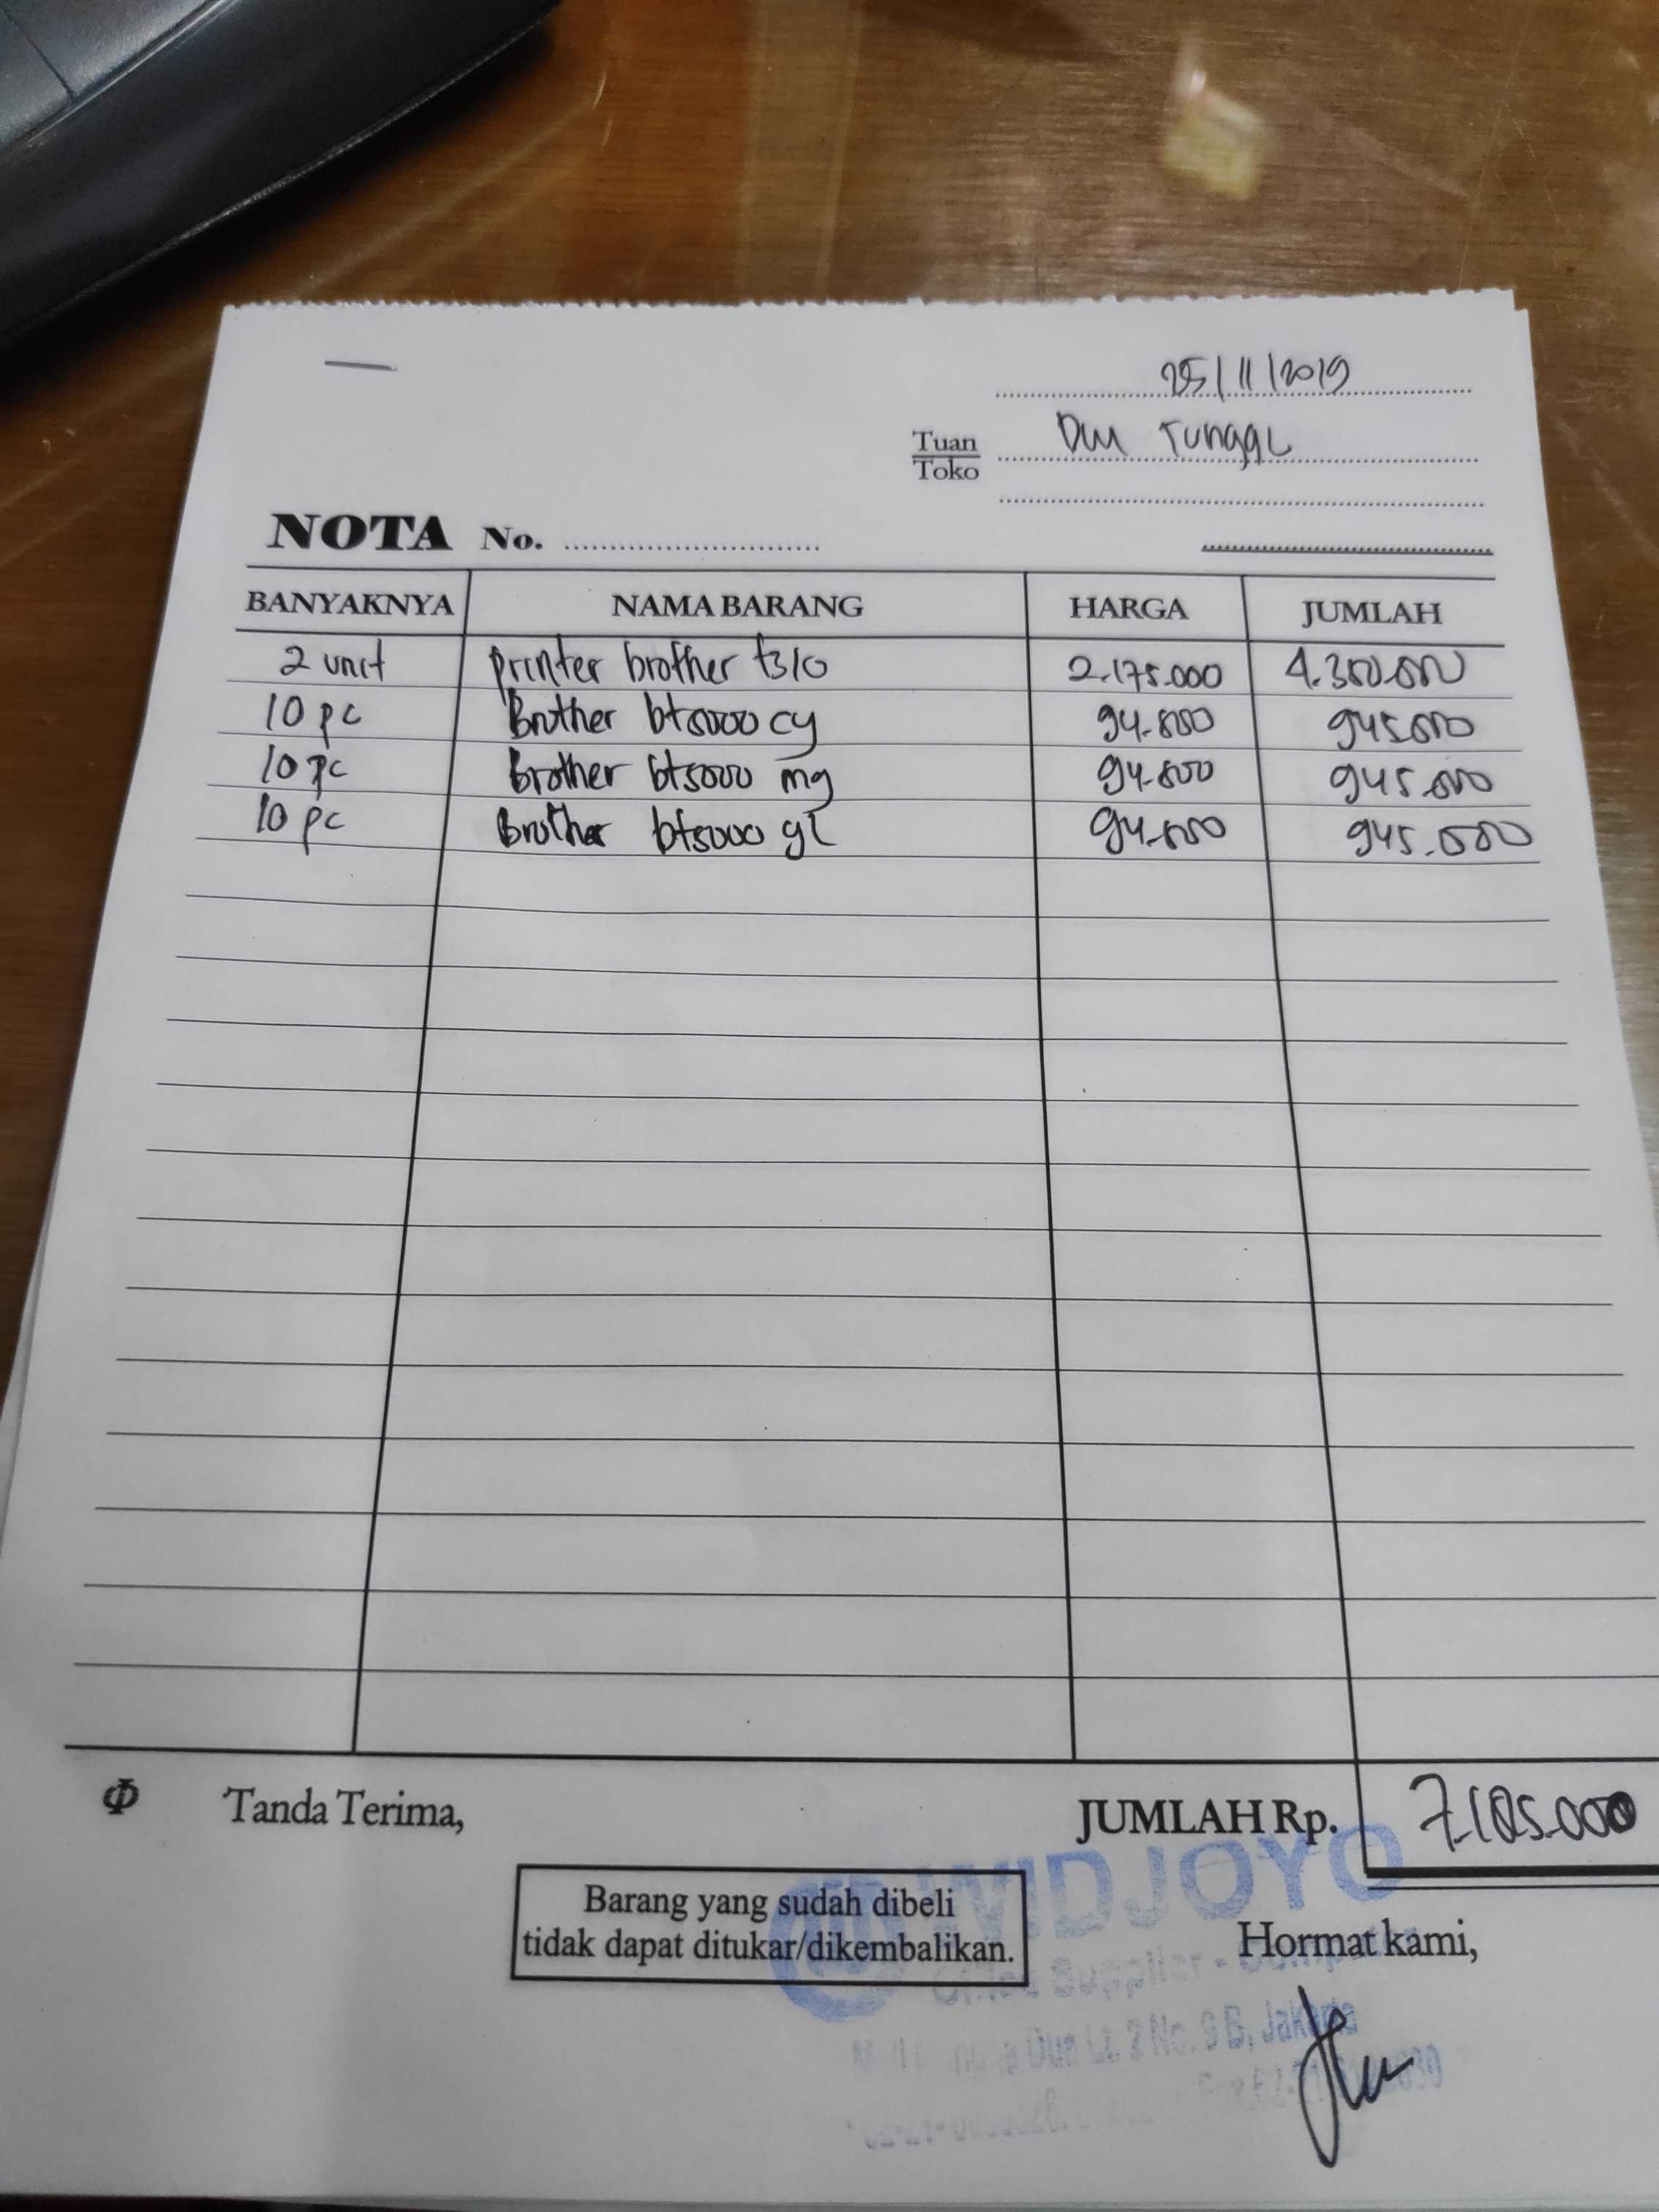 25/11/2019
Tuan Toko Dwi Tunggl
NOTA No.
BANYAKNYA NAMA BARANG HARGA JUMLAH
2 unit printer brother t310 2.175.000 4.350.000
10 pc Brother bt5000 cy 94.500 945.000
10 pc Brother bt5000 mg 94.500 945.000
10 pc Brother bt5000 yl 94.500 945.000
Tanda Terima, JUMLAH Rp. 7.185.000
WIDJOYO
Barang yang sudah dibeli
tidak dapat ditukar/dikembalikan.
Hormat kami,
Office Supplier - Computer
Dua Lt. 2 No. 9 B, Jakarta